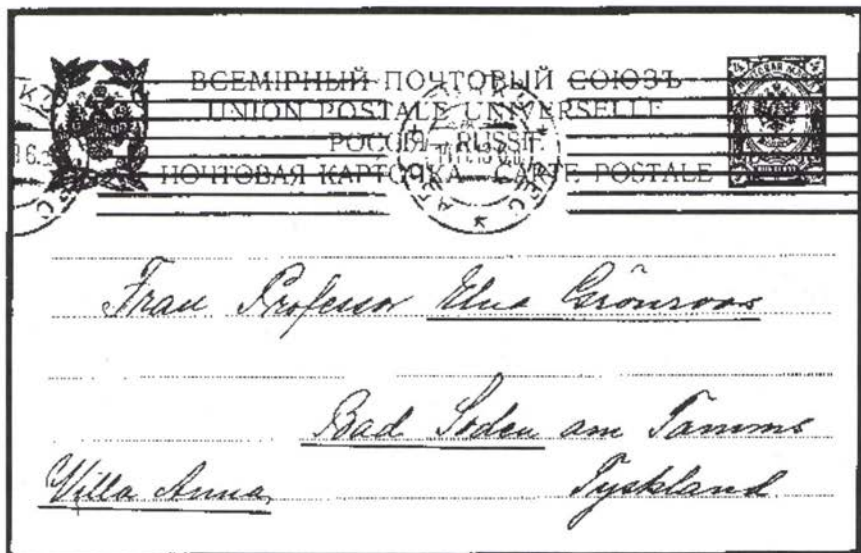 ВСЕМІРНЫЙ ПОЧТОВЫЙ СОЮЗЪ
UNION POSTALE UNIVERSELLE
РОССІЯ RUSSIE
ПОЧТОВАЯ КАРТОЧКА CARTE POSTALE
Frau Professor Elna Grönroos
Bad Soden am Taunus
Villa Anna, Tyskland